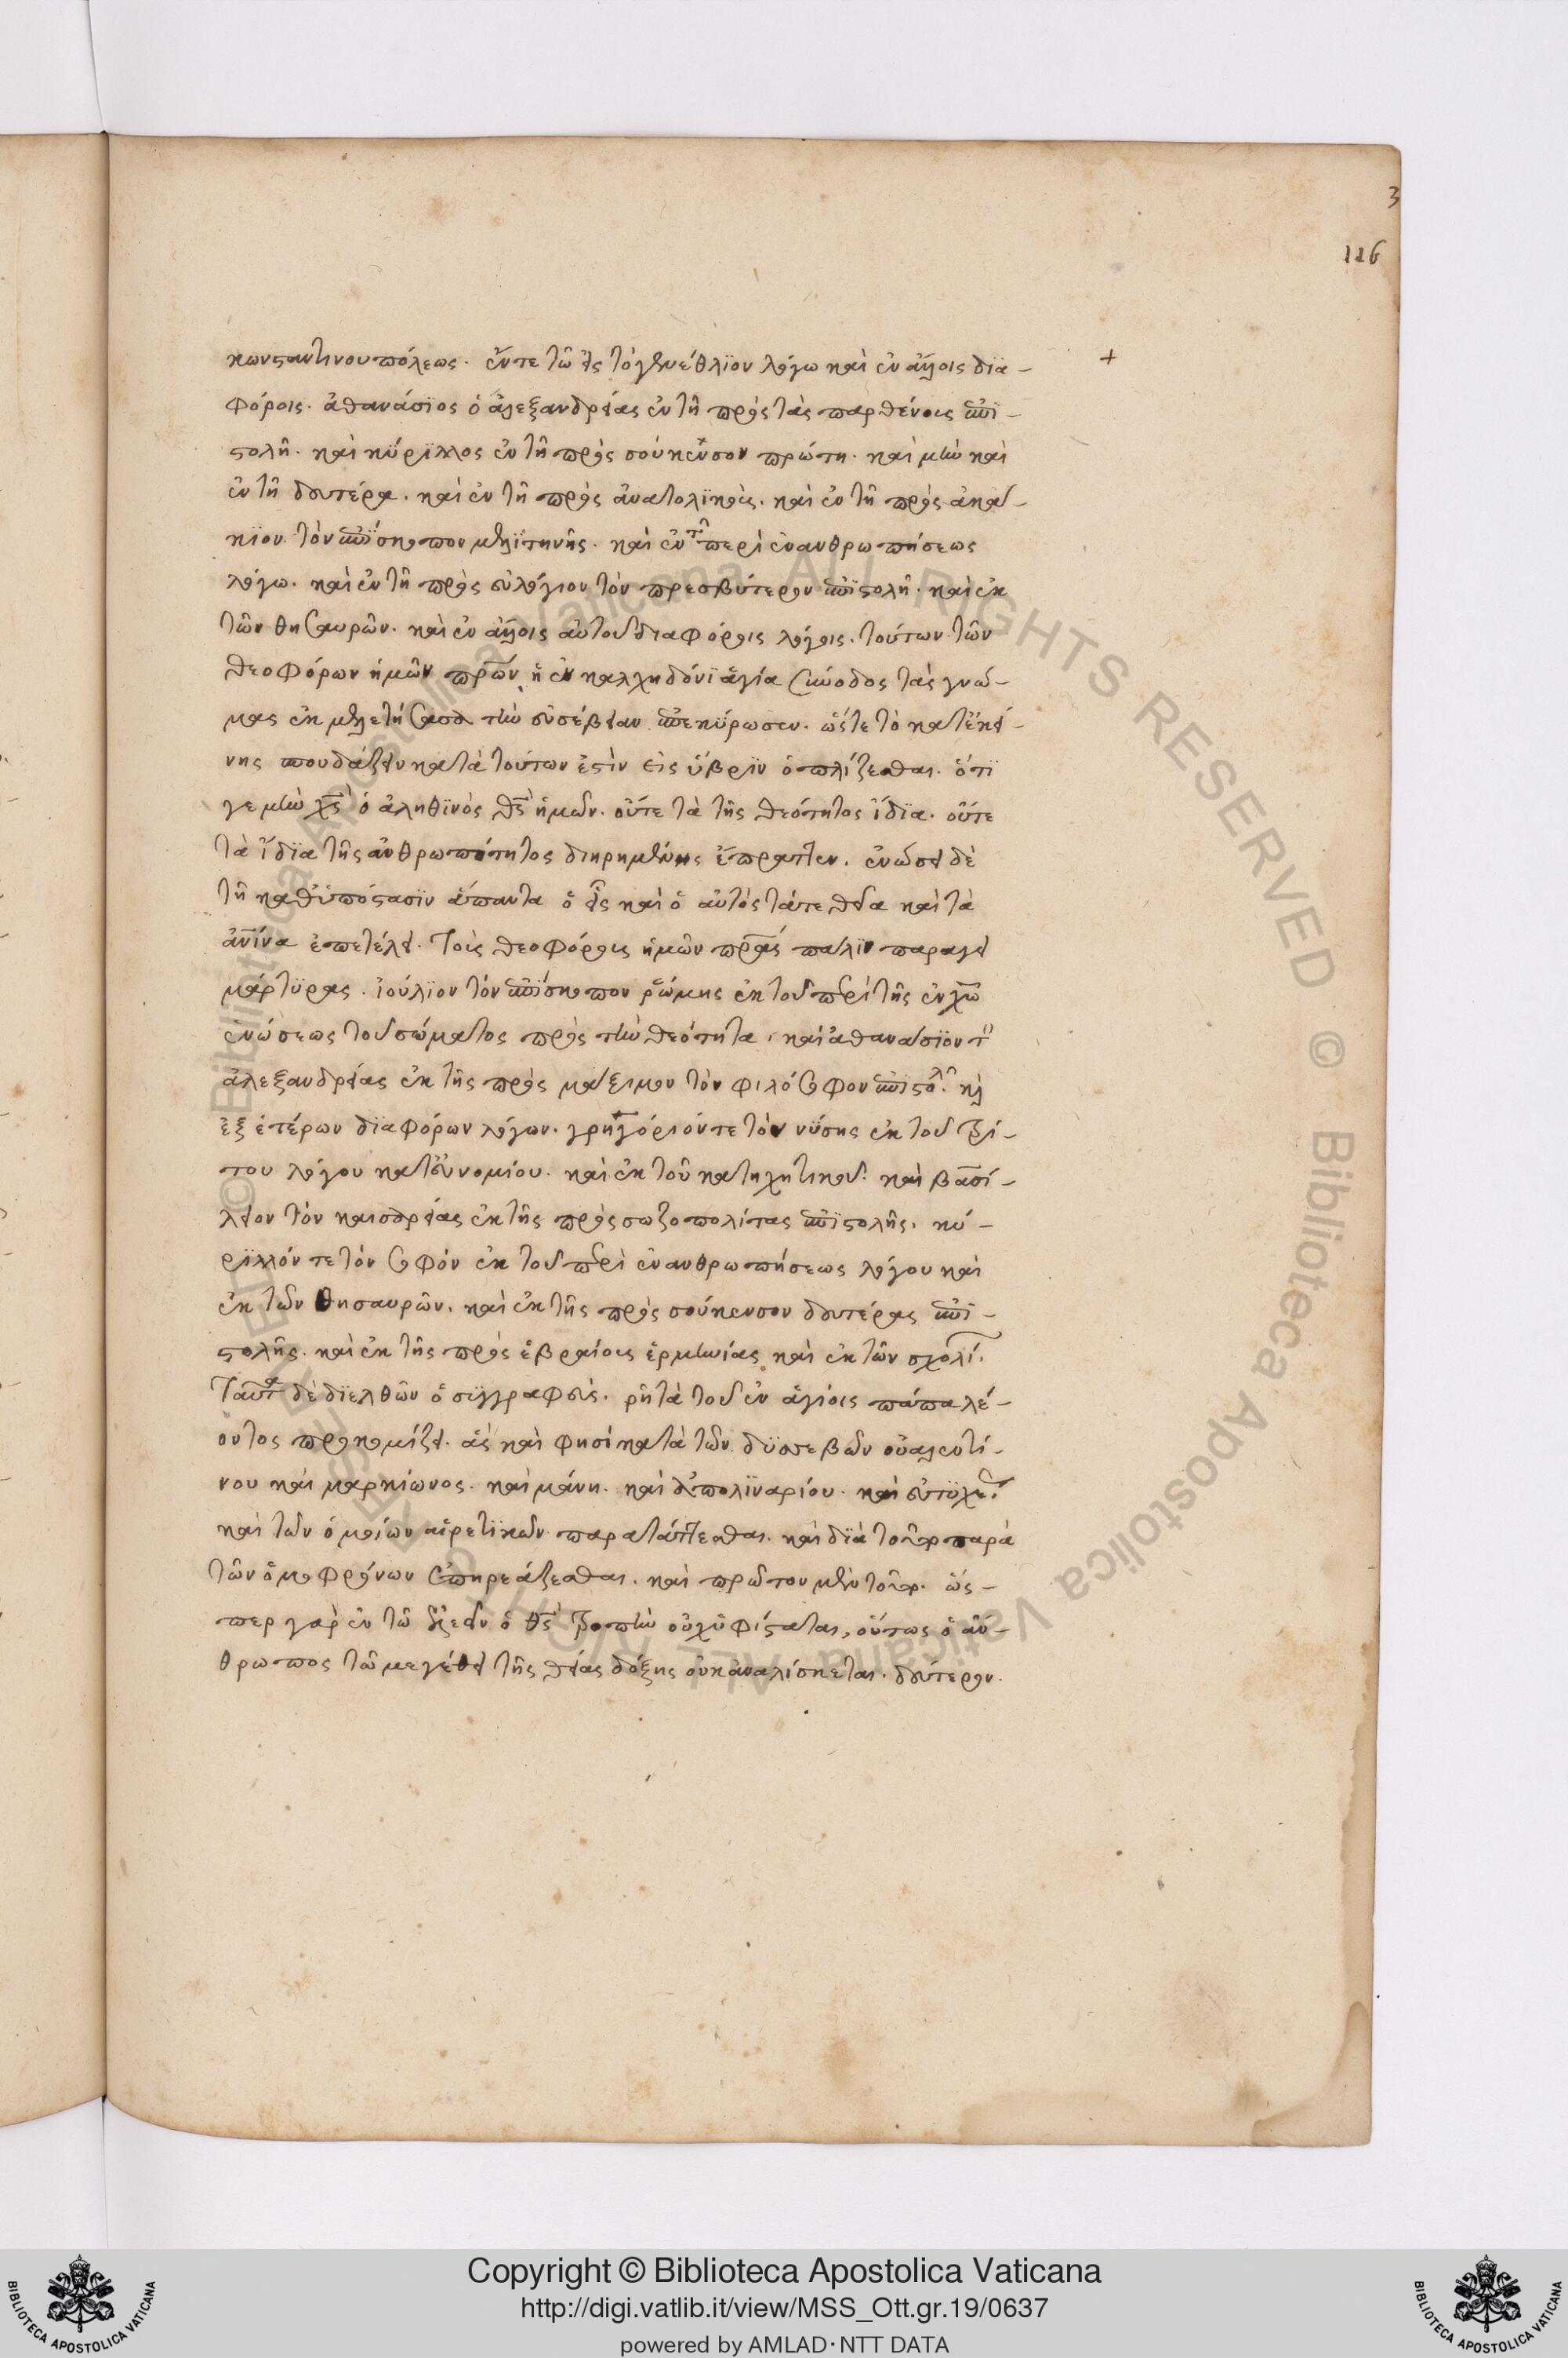 3
116
κωνσταντινουπόλεως. ἔν τε τῶ εἰς τὸ γενέθλϊον λόγω καὶ ἐν ἄλλοις δϊα- +
φόροις. ἀθανάσϊος ὁ ἀλεξανδρείας ἐν τῆ πρὸς τὰς παρθένους ἐπϊ-
στολῆ. καὶ κύρϊλλος ἐν τῆ πρὸς σούκενσον πρώτη. καὶ μὴν καὶ
ἐν τῆ δευτέρα. καὶ ἐν τῆ πρὸς ἀνατολϊκούς. καὶ ἐν τῆ πρὸς ἀκά-
κϊον τὸν ἐπίσκοπον μελϊτηνῆς. καὶ ἐν τῶ περὶ ἐνανθρωπήσεως
λόγω. καὶ ἐν τῆ πρὸς εὐλόγιον τὸν πρεσβύτερον ἐπϊστολῆ. καὶ ἐκ
τῶν θησαυρῶν. καὶ ἐν ἄλλοις αὐτοῦ διαφόροις λόγοις. τούτων τῶν
θεοφόρων ἡμῶν πρῶν ἡ ἐν καλχηδόνϊ ἁγία σύνοδος τὰς γνώ-
μας ἐκμελετήσασα τὴν εὐσέβειαν ἐπεκύρωσεν. ὥστε τὸ κατ' ἐκεί-
νης σπουδάζειν κατὰ τούτων ἐστὶν εἰς ὕβρϊν ὁπλίζεσθαι. ὅτϊ
γε μὴν χς ὁ ἀληθϊνὸς θς ἡμῶν. οὔτε τὰ τῆς θεότητος ἴδϊα. οὔτε
τὰ ἴδϊα τῆς ἀνθρωπότητος διηρημένως ἔπραττεν. ἑνώσει δὲ
τῆ καθ' ὑπόστασϊν ἅπαντα ὁ εἷς καὶ ὁ αὐτὸς τά τε θεῖα καὶ τὰ
ἀνϊνα ἐπετέλει. τοὺς θεοφόρους ἡμῶν πρας πάλϊν παράγει
μάρτυρας. ἰούλϊον τὸν ἐπίσκοπον ῥώμης ἐκ τοῦ περὶ τῆς ἐν χω
ἑνώσεως τοῦ σώματος πρὸς τὴν θεότητα. καὶ ἀθανάσϊον τὸν
ἀλεξανδρείας ἐκ τῆς πρὸς μάξιμον τὸν φιλόσοφον ἐπιστολῆς. καὶ
ἐξ ἑτέρων δϊαφόρων λόγων. γρηγόριόν τε τὸν νύσης ἐκ τοῦ τρί-
του λόγου κατ' εὐνομίου. καὶ ἐκ τοῦ κατηχητικοῦ. καὶ βασί-
λειον τὸν καισαρείας ἐκ τῆς πρὸς σωζοπολίτας ἐπϊστολῆς. κύ-
ρϊλλόν τε τὸν σοφὸν ἐκ τοῦ περὶ ἐνανθρωπήσεως λόγου καὶ
ἐκ τῶν θησαυρῶν. καὶ ἐκ τῆς πρὸς σούκενσον δευτέρας ἐπϊ-
στολῆς. καὶ ἐκ τῆς πρὸς ἑβραίους ἑρμηνίας καὶ ἐκ τῶν σχολί.
ταῦτα δὲ δϊελθὼν ὁ συγγραφεύς. ῥητὰ τοῦ ἐν ἁγίοις πάπα λέ-
οντος προκομίζει. ἃς καὶ φησὶ κατὰ τῶν δυσσεβῶν οὐαλεντί-
νου καὶ μαρκίωνος. καὶ μάνη. καὶ ἀπολϊναρίου. καὶ εὐτυχοῦς.
καὶ τῶν ὁμοίων αἱρετϊκῶν παρατάττεσθαι. καὶ δϊὰ τοῦτο παρὰ
τῶν ὁμοφρόνων ἐπηρεάζεσθαι. καὶ πρῶτον μὲν τοῦτο. ὥσ-
περ γὰρ ἐν τῶ ἐλεεῖν ὁ θς τροπὴν οὐχ ὑφίσταται, οὕτως ὁ ἄν-
θρωπος τῶ μεγέθει τῆς θείας δόξης οὐκ ἀναλίσκεται. δεύτερον.
Copyright © Biblioteca Apostolica Vaticana
http://digi.vatlib.it/view/MSS_Ott.gr.19/0637
powered by AMLAD·NTT DATA